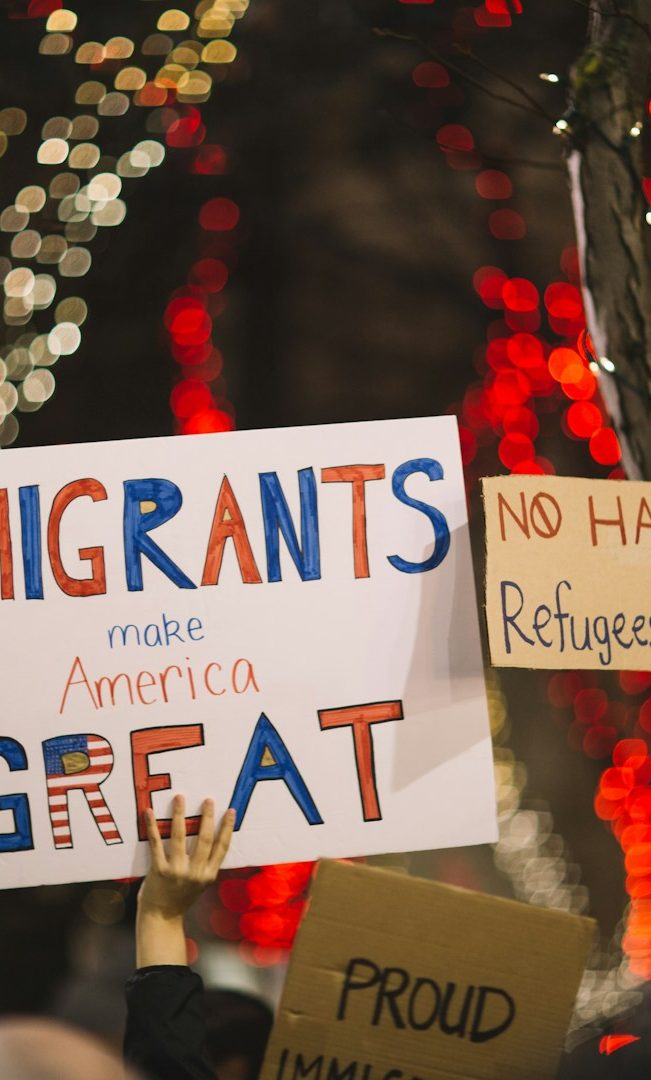 MIGRANTS
make
America
GREAT
NO HA
Refugees
PROUD
IMMIG